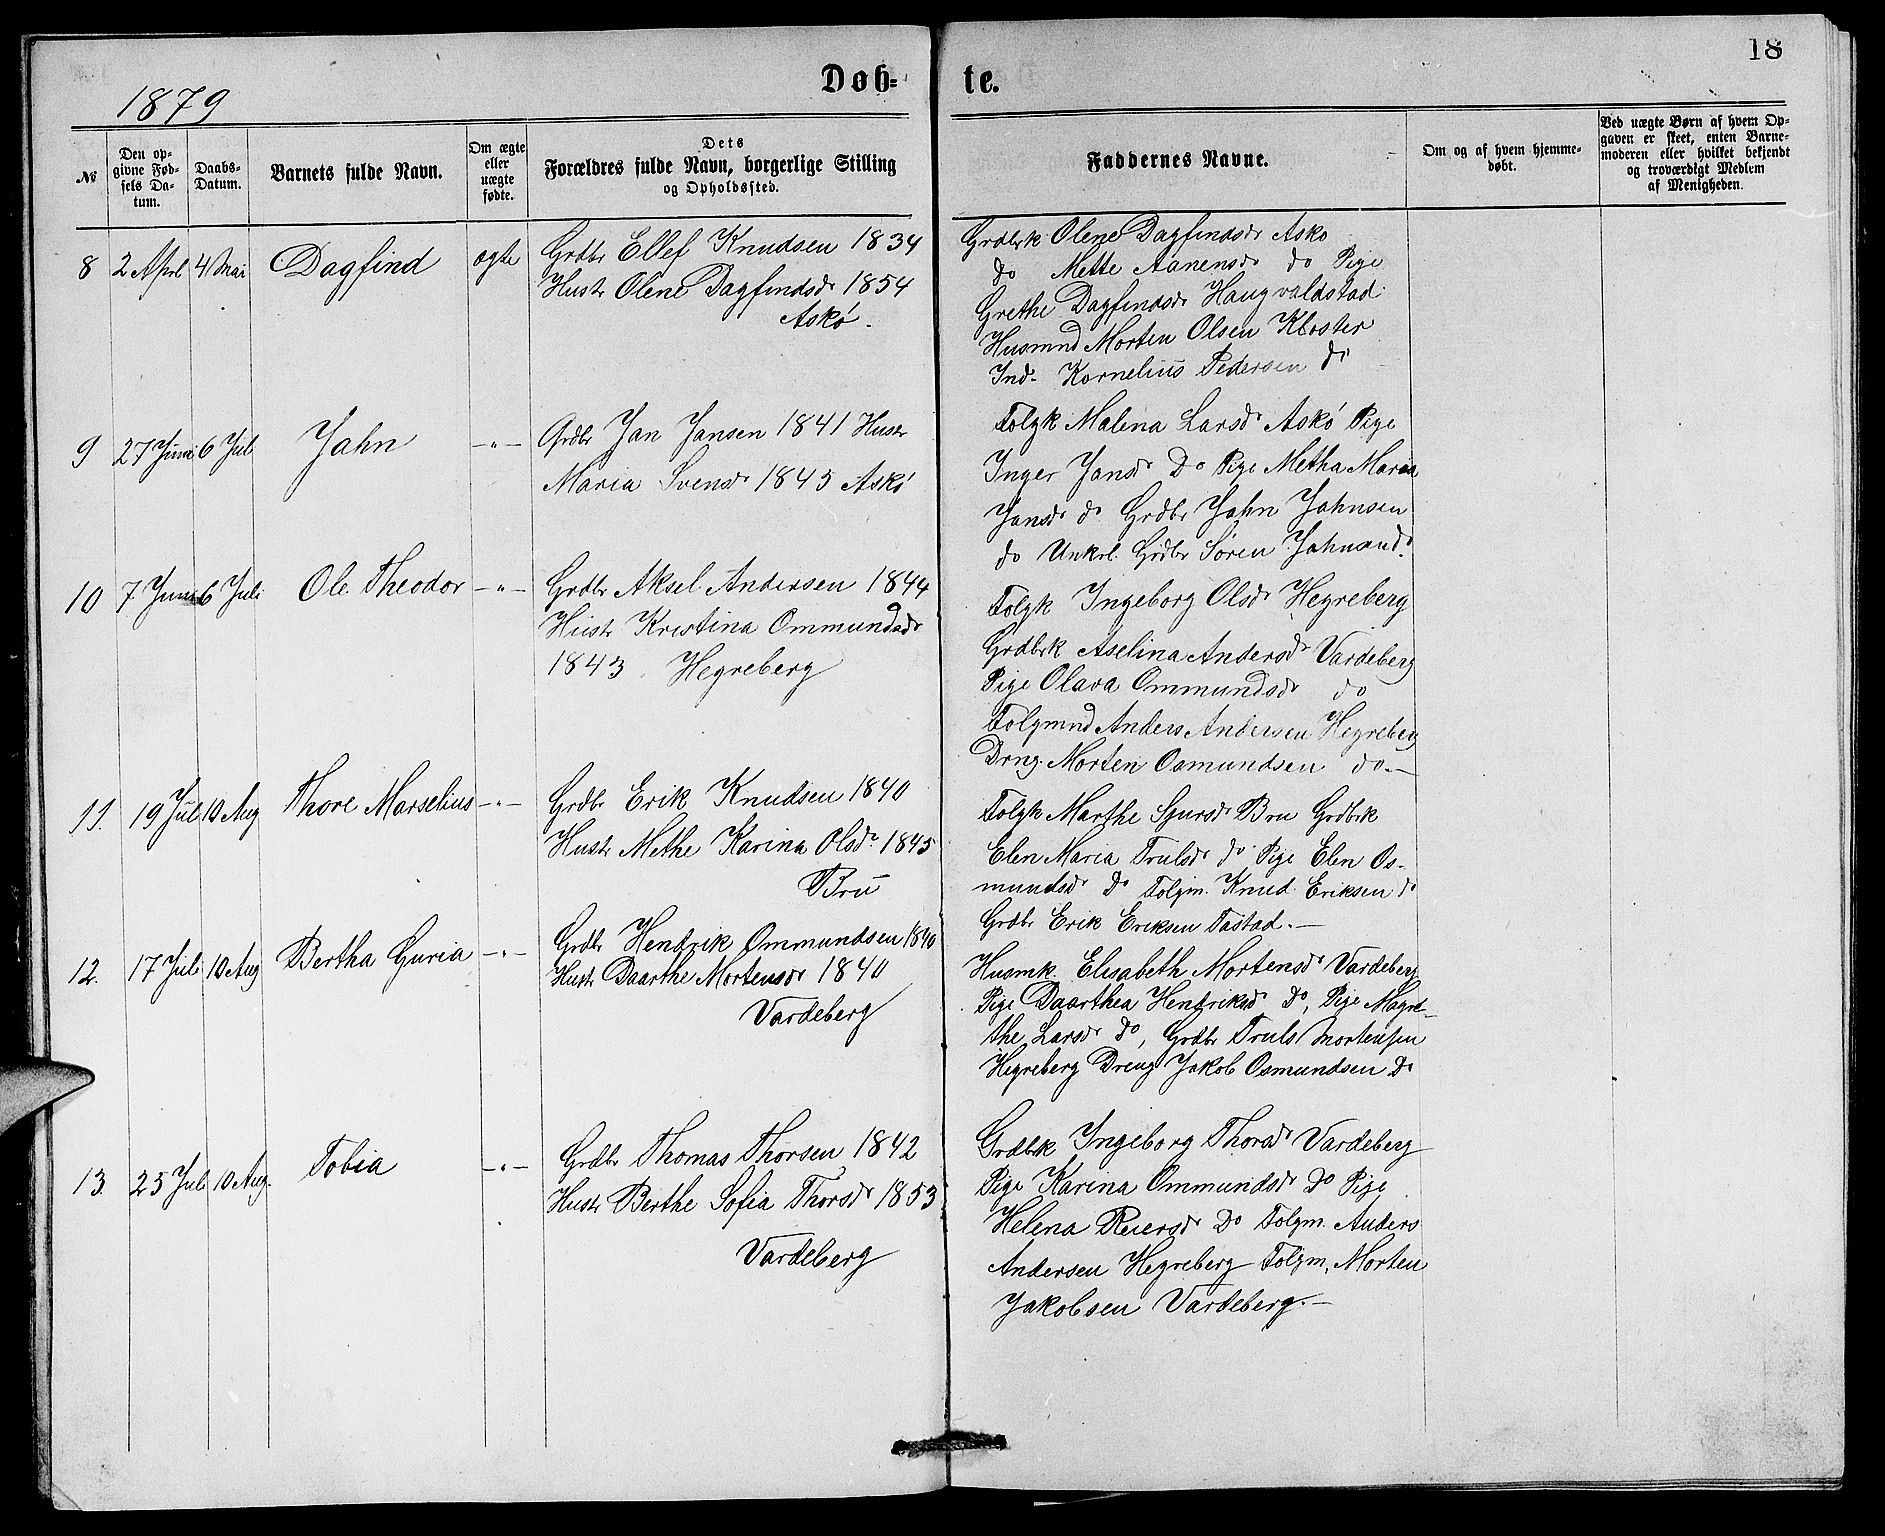 18
Døb- te.
1879
No
Den op-
givne Fød-
sels Da-
tum.
Daabs-
Datum.
Barnets fulde Navn.
Om ægte
eller
uægte
fødte.
Dets
Forældres fulde Navn, borgerlige Stilling
og Opholdssted.
Faddernes Navne.
Om og af hvem hjemme-
døbt.
Ved uægte Børn af hvem Op-
gaven er skeet, enten Barne-
moderen eller hvilket bekjendt
og troværdigt Medlem
af Menigheden.
8 2 Aprl 4 Mai Dagfind ægte
Grdbr Ellef Knudsen 1834
Hustr Olene Dagfindsdr 1854
Askø.
Grdbrk Olene Dagfindsdr Askø
do Mette Aanensdr do Pige
Grethe Dagfindsdr Haugvaldstad
Husmnd Morten Olsen Kloster
Ind. Kornelius Pedersen do
9 27 Juni 6 Jul Jahn -"-
Grdbr Jan Jansen 1841 Hustr
Maria Svensdr 1845 Askø
Folgk Malena Larsdr Askø Pige
Inger Jansdr Do Pige Metha Maria
Jansdr do Grdbr Jahn Jahnsen
do Unkrl. Grdbr Søren Jahnsen do.
10 7 Juni 6 Juli Ole Theodor -"-
Grdbr Aksel Andersen 1844
Hustr Kristina Ommundsdr
1843 Hegreberg
Folgk Ingeborg Olsdr Hegreberg
Grdbrk Aselina Andersdr Vardeberg
Pige Olava Ommundsdr do
Folgmnd Anders Andersen Hegreberg
Drng. Morten Osmundsen do.-
11. 19 Jul 10 Aug Thore Marselius -"-
Grdbr Erik Knudsen 1840
Hustr Methe Karina Olsdr 1845
Bru
Folgk Marthe Sjursdr Bru Grdbrk
Elen Maria Trulsdr do Pige Elen Os-
mundsdr Do Folgm. Knud Eriksen do
Grdbr Erik Eriksen Tastad.-
12. 17 Juli 10 Aug Bertha Guria -"-
Grdbr Hendrik Ommundsen 1840
Hustr Daarthe Mortensdr 1840
Vardeberg
Husmk. Elisabeth Mortensdr Vardeberg
Pige Daarthea Hendriksdr Do, Pige Magre-
the Larsdr do, Grdbr Truls Mortensen
Hegreberg Dreng Jakob Osmundsen Do
13. 25 Juli 10 Aug. Tobia -"-
Grdbr Thomas Thorsen 1842
Hustr Berthe Sofia Thorsdr 1853
Vardeberg
Grdbrk Ingeborg Thorsdr Vardeberg
Pige Karina Ommundsdr Do Pige
Helena Reiersdr Do Folgm. Anders
Andersen Hegreberg Folgm. Morten
Jakobsen Vardeberg.-